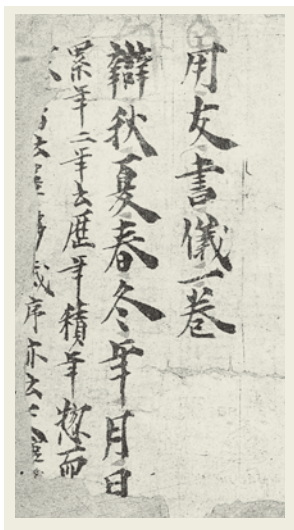 用友書儀一卷
辯秋夏春冬年月日
累年二年去歷年積年惣而
序亦云